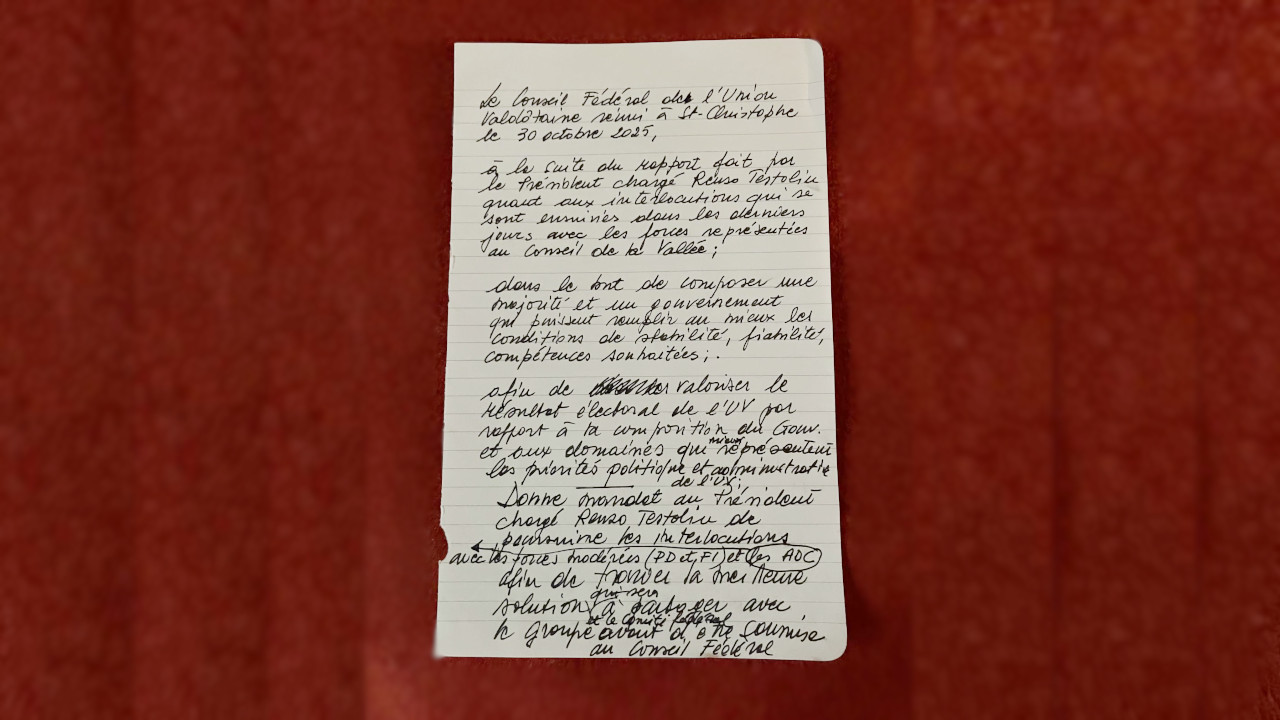 Le Conseil Fédéral de l'Union
Valdôtaine réuni à St-Christophe
le 30 octobre 2025,
à la suite du rapport fait par
le Président chargé Renzo Testolin
quant aux interlocutions qui se
sont ensuivies dans les derniers
jours avec les forces représentées
au Conseil de la Vallée;
dans le but de composer une
majorité et un gouvernement
qui puissent remplir au mieux les
conditions de stabilité, fiabilité,
compétences souhaitées;.
afin de valoriser le
résultat électoral de l'UV par
rapport à la composition du Gouv.
mieux
et aux domaines qui représentent
les priorités politique et administrative
de l'UV;
Donne mandat au Président
chargé Renzo Testolin de
poursuivre les interlocutions
avec les forces modérées (PD et FI) et les ADC
afin de trouver la meilleure
qui sera
solution à partager avec
et le Comité fédéral
le groupe avant d'être soumise
au Conseil Fédéral